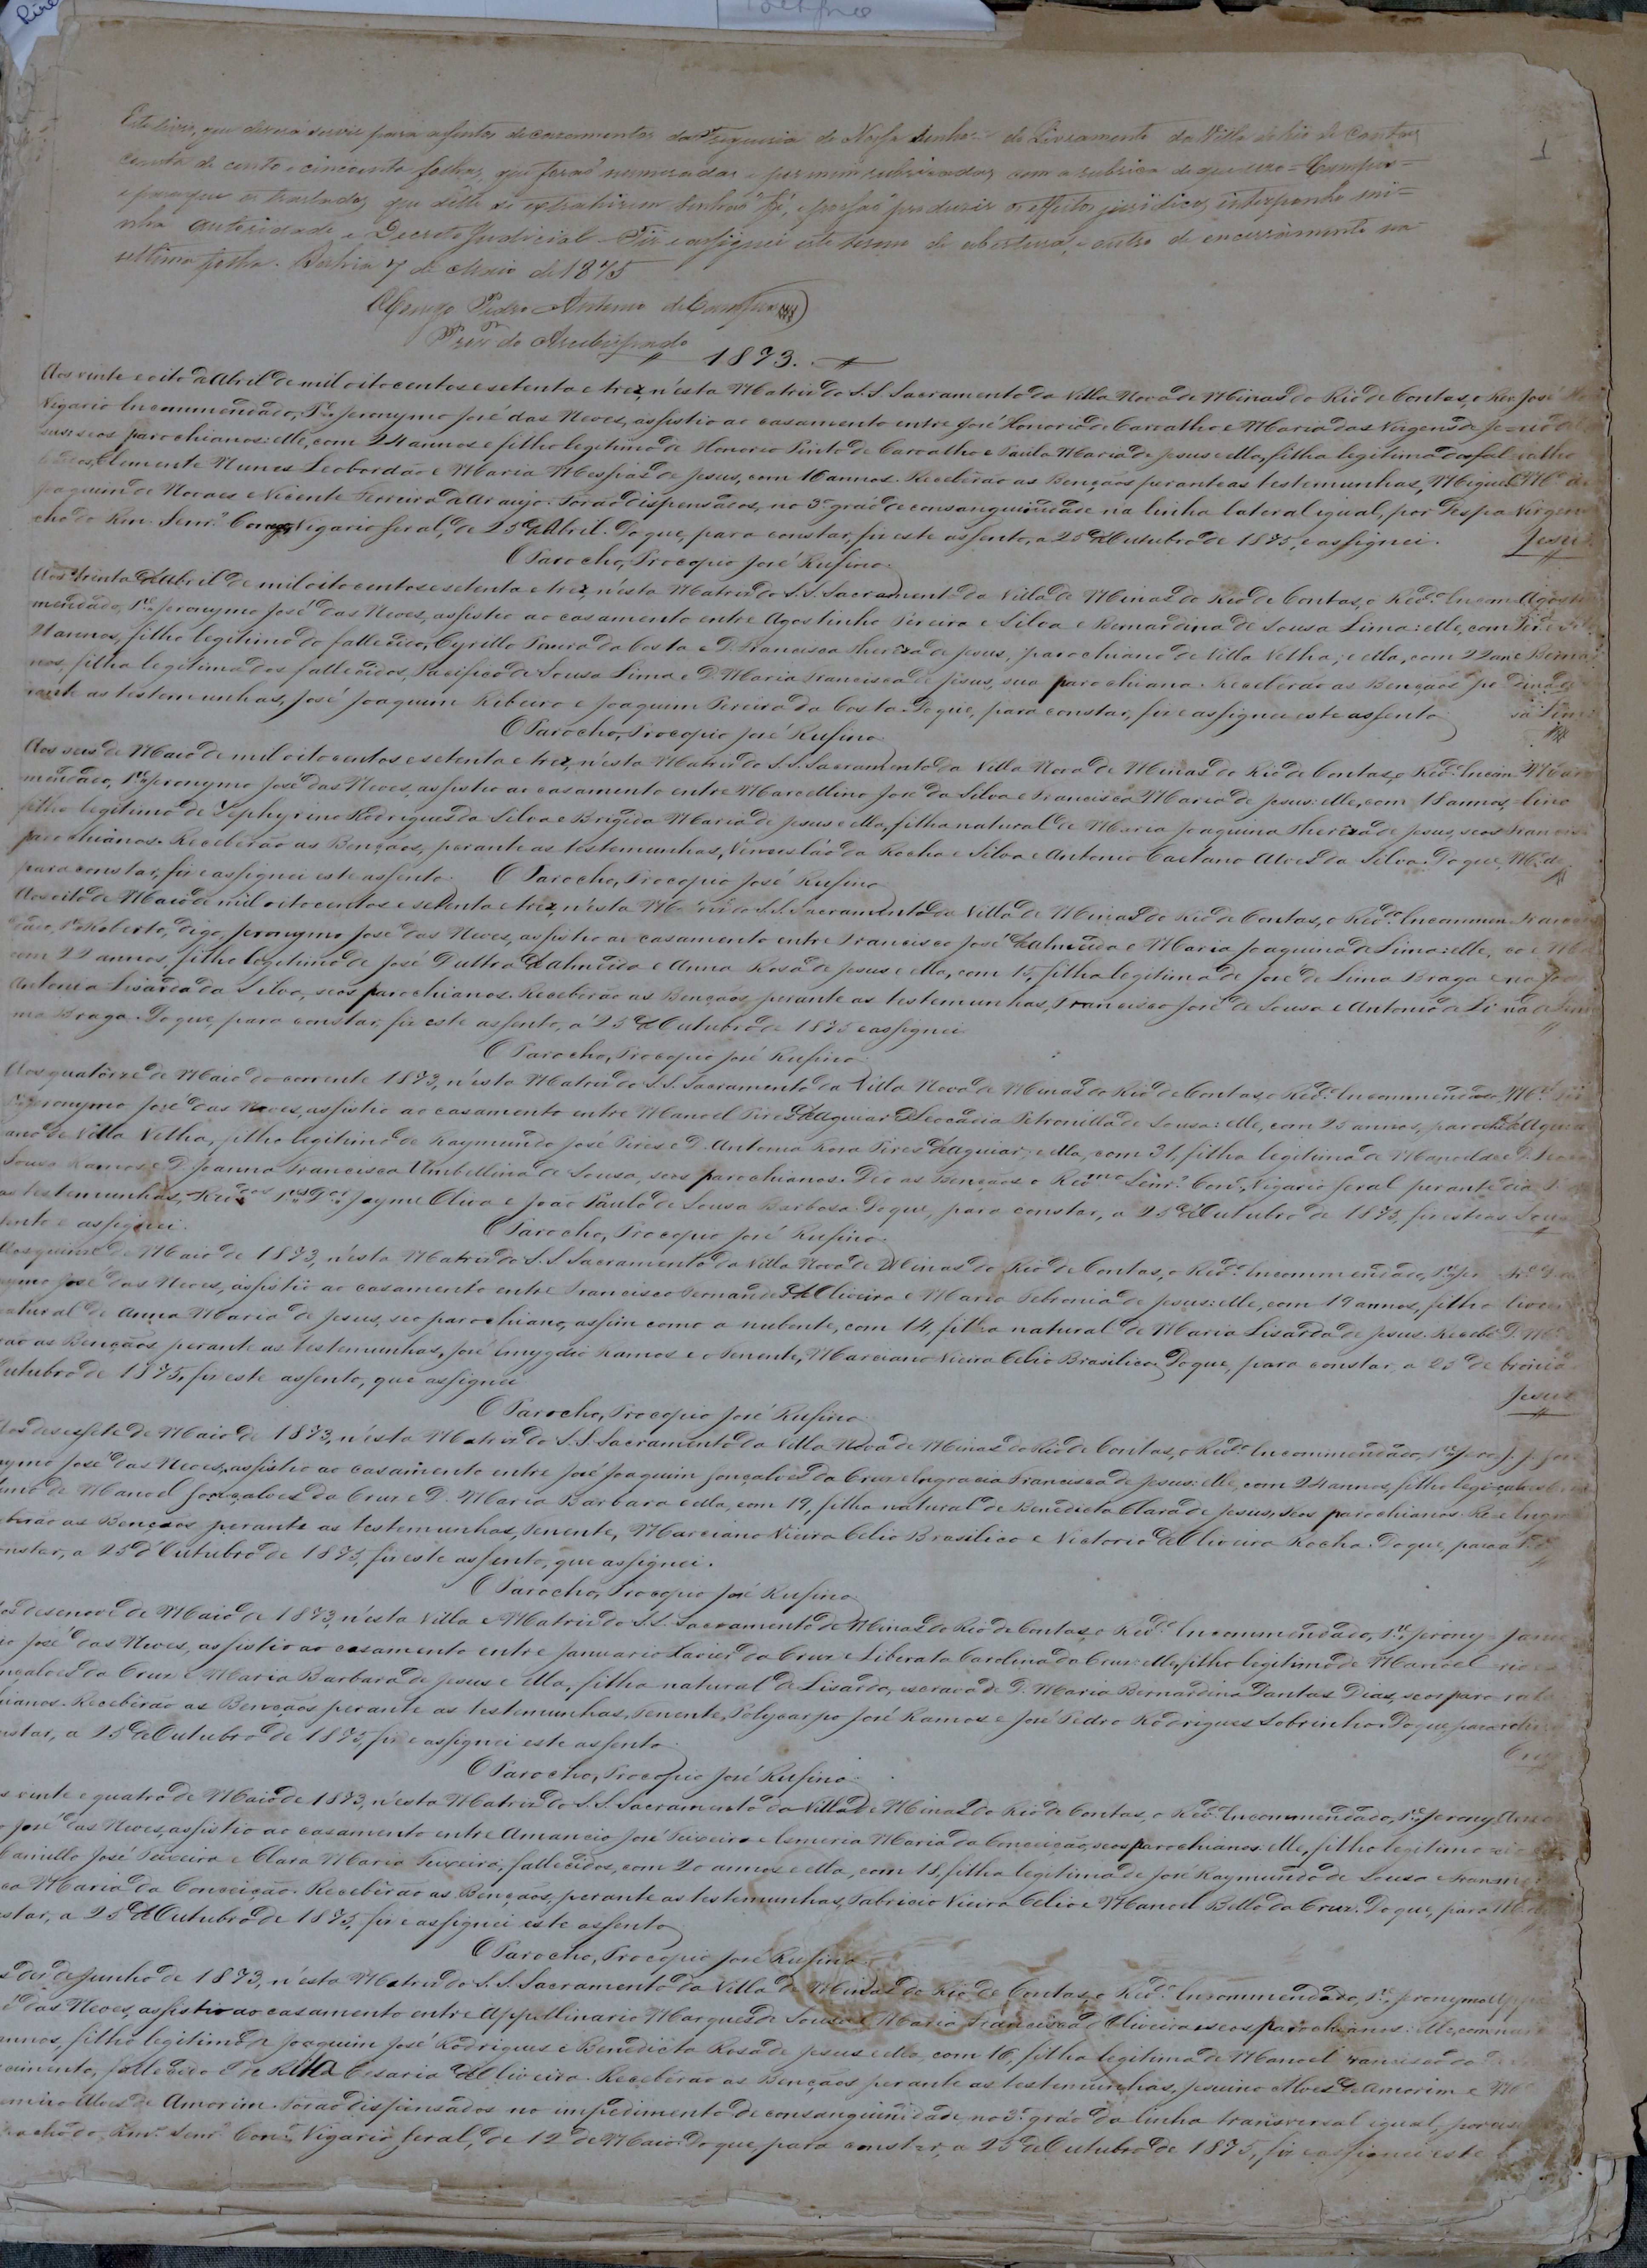 Este livro, que deverá servir para assentos de casamentos da Freguesia de Nossa Senhora do Livramento da Villa do Rio de Contas
consta de cento e cincoenta folhas, que forão numeradas e por mim rubricadas com a rubrica de que uso = Campos =
e para que os traslados, que delle se extrahirem tenhão fé, e possão produzir os effeitos juridicos, interponho mi=
nha autoridade e Decreto Judicial. Fiz e assignei este termo de abertura, e outro de encerramento na
ultima folha. Bahia 7 de Maio de 1875
Conego Pedro Antonio de Campos
Pror. do Arcebispado
1
1873.
Aos vinte e oito de Abril de mil oitocentos e setenta e trez, n'ésta Matriz do S.S. Sacramento da Villa Nova de Minas do Rio de Contas, o Rev. José
Vigario Encommendado, Pe. Jeronymo José das Neves, assistio ao casamento entre José Honorio de Carvalho e Maria das Virgens de Je= rio de
sus: seos parochianos: elle, com 24 annos e filho legitimo de Honorio Pinto de Carvalho e Paula Maria de Jesus e ella, filha legitima dos fal
Clemente Nunes Leobordão e Maria Messias de Jesus, com 16 annos. Receberão as Bençãos perante as testemunhas, Miguel
Joaquim de Novaes e Vicente Ferreira de Araujo. Forão dispensados, no 3º gráo de consanguinidade na linha lateral igual, por Despa Virgens
cho do Rm. Senr. Conego Vigario Geral, de 25 de Abril. Do que, para constar, fiz este assento, a 25 de Outubro de 1875, e assignei. Jesus
O Parocho, Procopio José Rufino.
Aos trinta de Abril de mil oitocentos e setenta e trez, n'ésta Matriz do S.S. Sacramento da Villa de Minas do Rio de Contas, o Redº Encom Agosti
mendado, Pe. Jeronymo José das Neves, assistio ao casamento entre Agostinho Pereira e Silva e Bernardina de Sousa Lima: elle, com
21 annos, filho legitimo do fallecido, Cyrillo Pereira da Costa e D. Francisca Thereza de Jesus, parochiano de Villa Velha; e ella, com 22 an
nos, filha legitima dos fallecidos, Pacifico de Sousa Lima e D. Maria Francisca de Jesus, sua parochiana. Receberão as Bençãos pe dina de
rante as testemunhas, José Joaquim Ribeiro e Joaquim Pereira da Costa. Do que, para constar, fiz e assignei este assento
O Parocho, Procopio José Rufino
Aos seis de Maio de mil oitocentos e setenta e trez, n'ésta Matriz do S.S. Sacramento da Villa Nova de Minas do Rio de Contas, o Redº Encom
mendado, Pe. Jeronymo José das Neves, assistio ao casamento entre Marcellino José da Silva e Francisca Maria de Jesus: elle, com 18 annos, lino
filho legitimo de Zephyrino Rodrigues da Silva e Brigida Maria de Jesus e ella, filha natural de Maria Joaquina Thereza de Jesus, seos
parochianos. Receberão as Bençãos, perante as testemunhas, Venceslão da Rocha e Silva e Antonio Caetano Alves da Silva. Do que, Mª de
para constar, fiz e assignei este assento. O Parocho, Procopio José Rufino
Aos oito de Maio de mil oitocentos e setenta e trez, n'ésta Matriz do S.S. Sacramento da Villa de Minas do Rio de Contas, o Redº Encommen
dado, Pe. Roberto, digo, Jeronymo José das Neves, assistio ao casamento entre Francisco José d'Almeida e Maria Joaquina de Lima: elle,
com 22 annos, filho legitimo de José Duttra d'Almeida e Anna Rosa de Jesus e ella, com 15, filha legitima de José de Lima Braga e
Antonia Lisarda da Silva, seos parochianos. Receberão as Bençãos, perante as testemunhas, Francisco José de Sousa e Antonio de Li
ma Braga. Do que, para constar, fiz este assento, a 25 de Outubro de 1875 e assignei
O Parocho, Procopio José Rufino.
Aos quatorze de Maio do corrente 1873, n'ésta Matriz do S.S. Sacramento da Villa Nova de Minas do Rio de Contas, o Redº Encommendado,
Pe. Jeronymo José das Neves, assistio ao casamento entre Manoel Pires d'Aguiar e D. Leocadia Petronilla de Sousa: elle, com 25 annos, parochi
ano de Villa Velha, filho legitimo de Raymundo José Pires e D. Antonia Rosa Pires d'Aguiar; e ella, com 31, filha legitima de Manoel de
Sousa Ramos e D. Joanna Francisca Umbellina de Sousa, seos parochianos. Deo as Bençãos o Redmo Senr. Con. Vigario Geral perante
as testemunhas, Redos Pes Dor Jayme Oliva e João Paulo de Sousa Barbosa. Do que, para constar, a 25 de Outubro de 1875, fiz este as
sento e assignei. O Parocho, Procopio José Rufino.
Aos quinze de Maio de 1873, n'ésta Matriz do S.S. Sacramento da Villa Nova de Minas do Rio de Contas, o Redº Encommendado, Pe. Jer
nymo José das Neves, assistio ao casamento entre Francisco Fernandes d'Oliveira e Maria Febronia de Jesus: elle, com 19 annos, filho
natural de Anna Maria de Jesus, seo parochiano, assim como a nubente, com 14, filha natural de Maria Lisarda de Jesus. Recebe
rão as Bençãos perante as testemunhas, José Emygdio Ramos e o Tenente, Marciano Vieira Celio Brasilico. Do que, para constar, a 25 de bronia
Outubro de 1875, fiz este assento, que assignei Jesus
O Parocho, Procopio José Rufino
Aos desessete de Maio de 1873, n'ésta Matriz do S.S. Sacramento da Villa Nova de Minas do Rio de Contas, o Redº Encommendado, Pe. Jero
nymo José das Neves, assistio ao casamento entre José Joaquim Gonçalves da Cruz e Engracia Francisca de Jesus: elle, com 24 annos, filho legi
timo de Manoel Gonçalves da Cruz e D. Maria Barbara e ella, com 19, filha natural de Benedicta Clara de Jesus, seos parochianos. Re
ceberão as Bençãos perante as testemunhas, Tenente, Marciano Vieira Celio Brasilico e Victorio d'Oliveira Rocha. Do que, para
constar, a 25 d'Outubro de 1875, fiz este assento, que assignei.
O Parocho, Procopio José Rufino
Aos desenove de Maio de 1873, n'ésta Villa e Matriz do S.S. Sacramento de Minas do Rio de Contas, o Redº Encommendado, Pe. Jerony=
mo José das Neves, assistio ao casamento entre Januario Xavier da Cruz e Liberata Carolina da Cruz: elle, filho legitimo de Manoel
Gonçalves da Cruz e Maria Barbara de Jesus e ella, filha natural de Lisarda, escrava de D. Maria Bernardina Dantas Dias, seos paro
chianos. Receberão as Bençãos perante as testemunhas, Tenente, Polycarpo José Ramos e José Pedro Rodrigues Sobrinho. Do que, para
constar, a 25 de Outubro de 1875, fiz e assignei este assento.
O Parocho, Procopio José Rufino
Aos vinte e quatro de Maio de 1873, n'ésta Matriz do S.S. Sacramento da Villa de Minas do Rio de Contas, o Redº Encommendado, Pe. Jerony
mo José das Neves, assistio ao casamento entre Amancio José Teixeira e Esmeria Maria da Conceição, seos parochianos: elle, filho legitimo
Camillo José Teixeira e Clara Maria Teixeira, fallecidos, com 20 annos e ella, com 18, filha legitima de José Raymundo de Sousa e Fran
ca Maria da Conceição. Receberão as Bençãos, perante as testemunhas, Fabricio Vieira Celio e Manoel Bello da Cruz. Do que, para
constar, a 25 de Outubro de 1875, fiz e assignei este assento
O Parocho, Procopio José Rufino.
dez de Junho de 1873, n'ésta Matriz do S.S. Sacramento da Villa de Minas do Rio de Contas, o Redº Encommendado, Pe. Jeronymo
é das Neves, assistio ao casamento entre Appollinario Marques de Sousa e Maria Francisca d'Oliveira, seos parochianos: elle, com
annos, filho legitimo de Joaquim José Rodrigues e Benedicta Rosa de Jesus e ella, com 16, filha legitima de Manoel Francisco do
cimento, fallecido e de Rita Cesaria d'Oliveira. Receberão as Bençãos perante as testemunhas, Jesuino Alves de Amorim e
emiro Alves de Amorim. Forão dispensados no impedimento de consanguinidade, no 3º gráo da linha transversal igual, por
pacho do Rmº Senr. Con. Vigario Geral, de 12 de Maio. Do que, para constar, a 25 de Outubro de 1875, fiz e assignei este